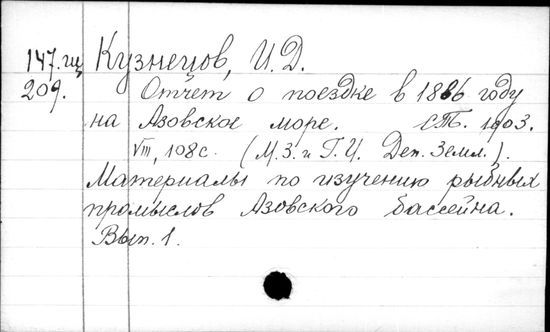 147.гц Кузнецов, И.Д.
209. Отчет о поездке в 1886 году
на Азовское море. СПб. 1903.
VIII, 108 с. (М.З. и Г.И. Деп. Земл.).
Материалы по изучению рыбных
промыслов Азовского бассейна.
Вып. 1.